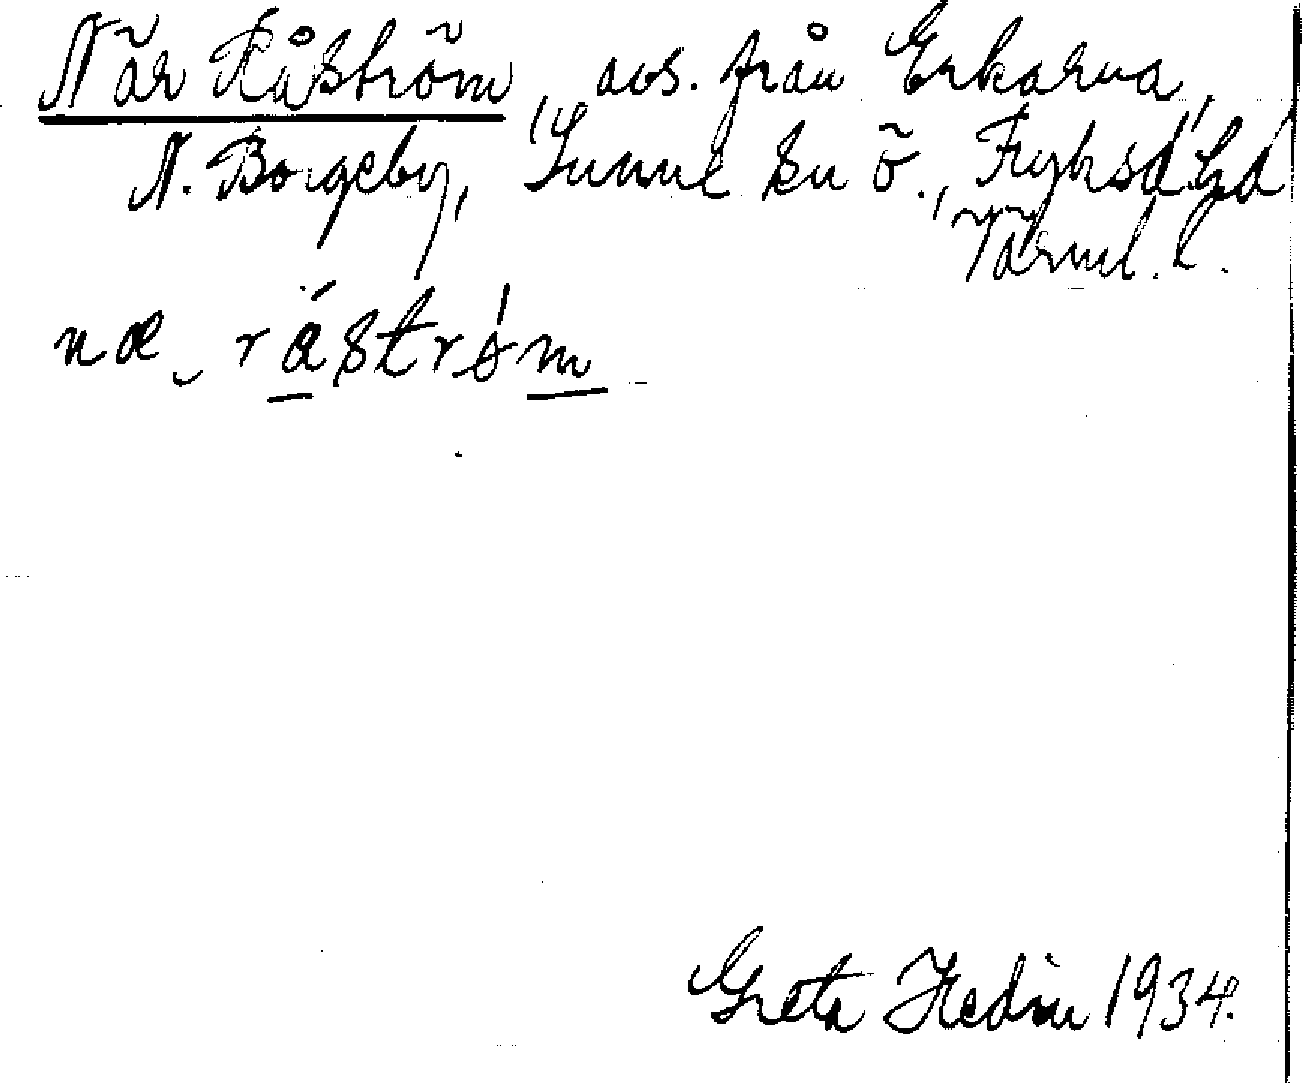 När Råström, avs. från Erkarva,
N. Borgeby, Sunne sn ö., Fryksd. hd
Värml. l.
næ råstróm
Greta Hedin 1934.